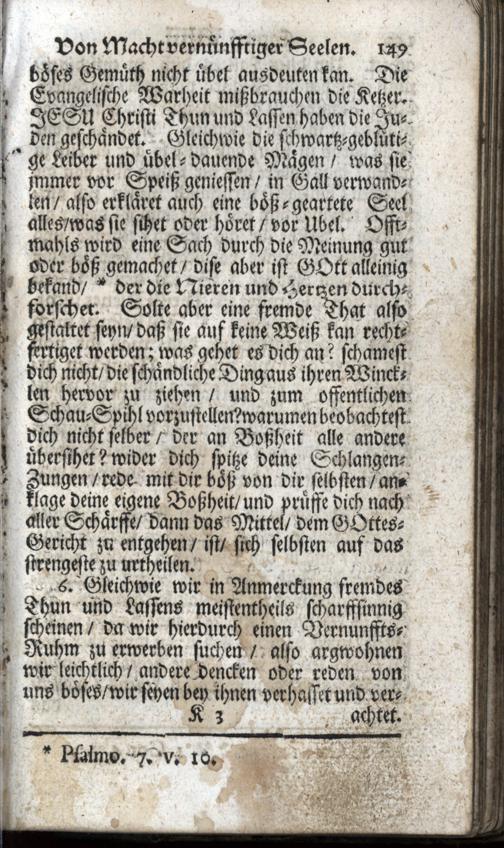 Von Macht vernünfftiger Seelen. 149
böses Gemüth nicht übel ausdeuten kan. Die
Evangelische Warheit mißbrauchen die Ketzer.
JESU Christi Thun und Lassen haben die Ju-
den geschändet. Gleichwie die schwartz-geblüti-
ge Leiber und übel-dauende Mägen / was sie
jmmer vor Speiß geniessen / in Gall verwand-
len / also erkläret auch eine böß-geartete Seel
alles / was sie sihet oder höret / vor Ubel. Offt-
mahls wird eine Sach durch die Meinung gut
oder böß gemachet / dise aber ist GOtt alleinig
bekand / * der die Nieren und Hertzen durch-
forschet. Solte aber eine fremde That also
gestaltet seyn / daß sie auf keine Weiß kan recht-
fertiget werden; was gehet es dich an? schamest
dich nicht / die schändliche Ding aus ihren Winck-
len hervor zu ziehen / und zum offentlichen
Schau-Spihl vorzustellen? warumen beobachtest
dich nicht selber / der an Boßheit alle andere
übersihet? wider dich spitze deine Schlangen-
Zungen / rede mit dir böß von dir selbsten / an-
klage deine eigene Boßheit / und prüffe dich nach
aller Schärffe / dann das Mittel / dem GOttes-
Gericht zu entgehen / ist / sich selbsten auf das
strengeste zu urtheilen.
6. Gleichwie wir in Anmerckung fremdes
Thun und Lassens meistentheils scharffsinnig
scheinen / da wir hierdurch einen Vernunffts-
Ruhm zu erwerben suchen / also argwohnen
wir leichtlich / andere dencken oder reden von
uns böses / wir seyen bey ihnen verhasset und ver-
K 3 achtet.
* Psalmo. 7. v. 10.